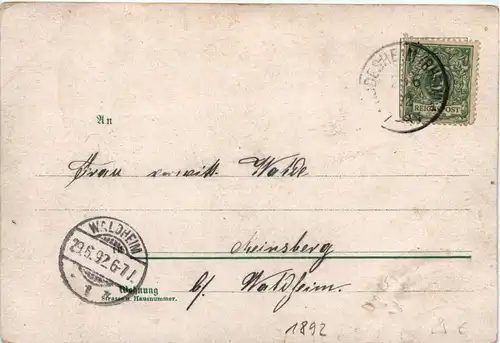 RÜDESHEIM (RHEIN)
REICHSPOST
An
Frau verwitt. Walde
WALDHEIM
29.6.92.6-7 N.
1
in
Steinsberg
b/ Waldheim.
Wohnung
Strasse u. Hausnummer.
1892